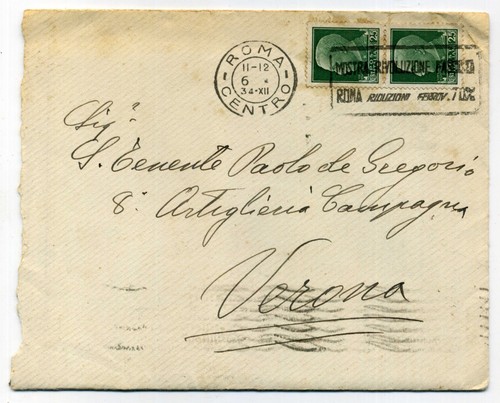 ROMA
11-12
6
34-XII
CENTRO
MOSTRA RIVOLUZIONE
ROMA RIDUZIONI FERROV. 70%
25
25
Sig.
S. Tenente Paolo de Gregorio
8° Artiglieria Campagna
Verona